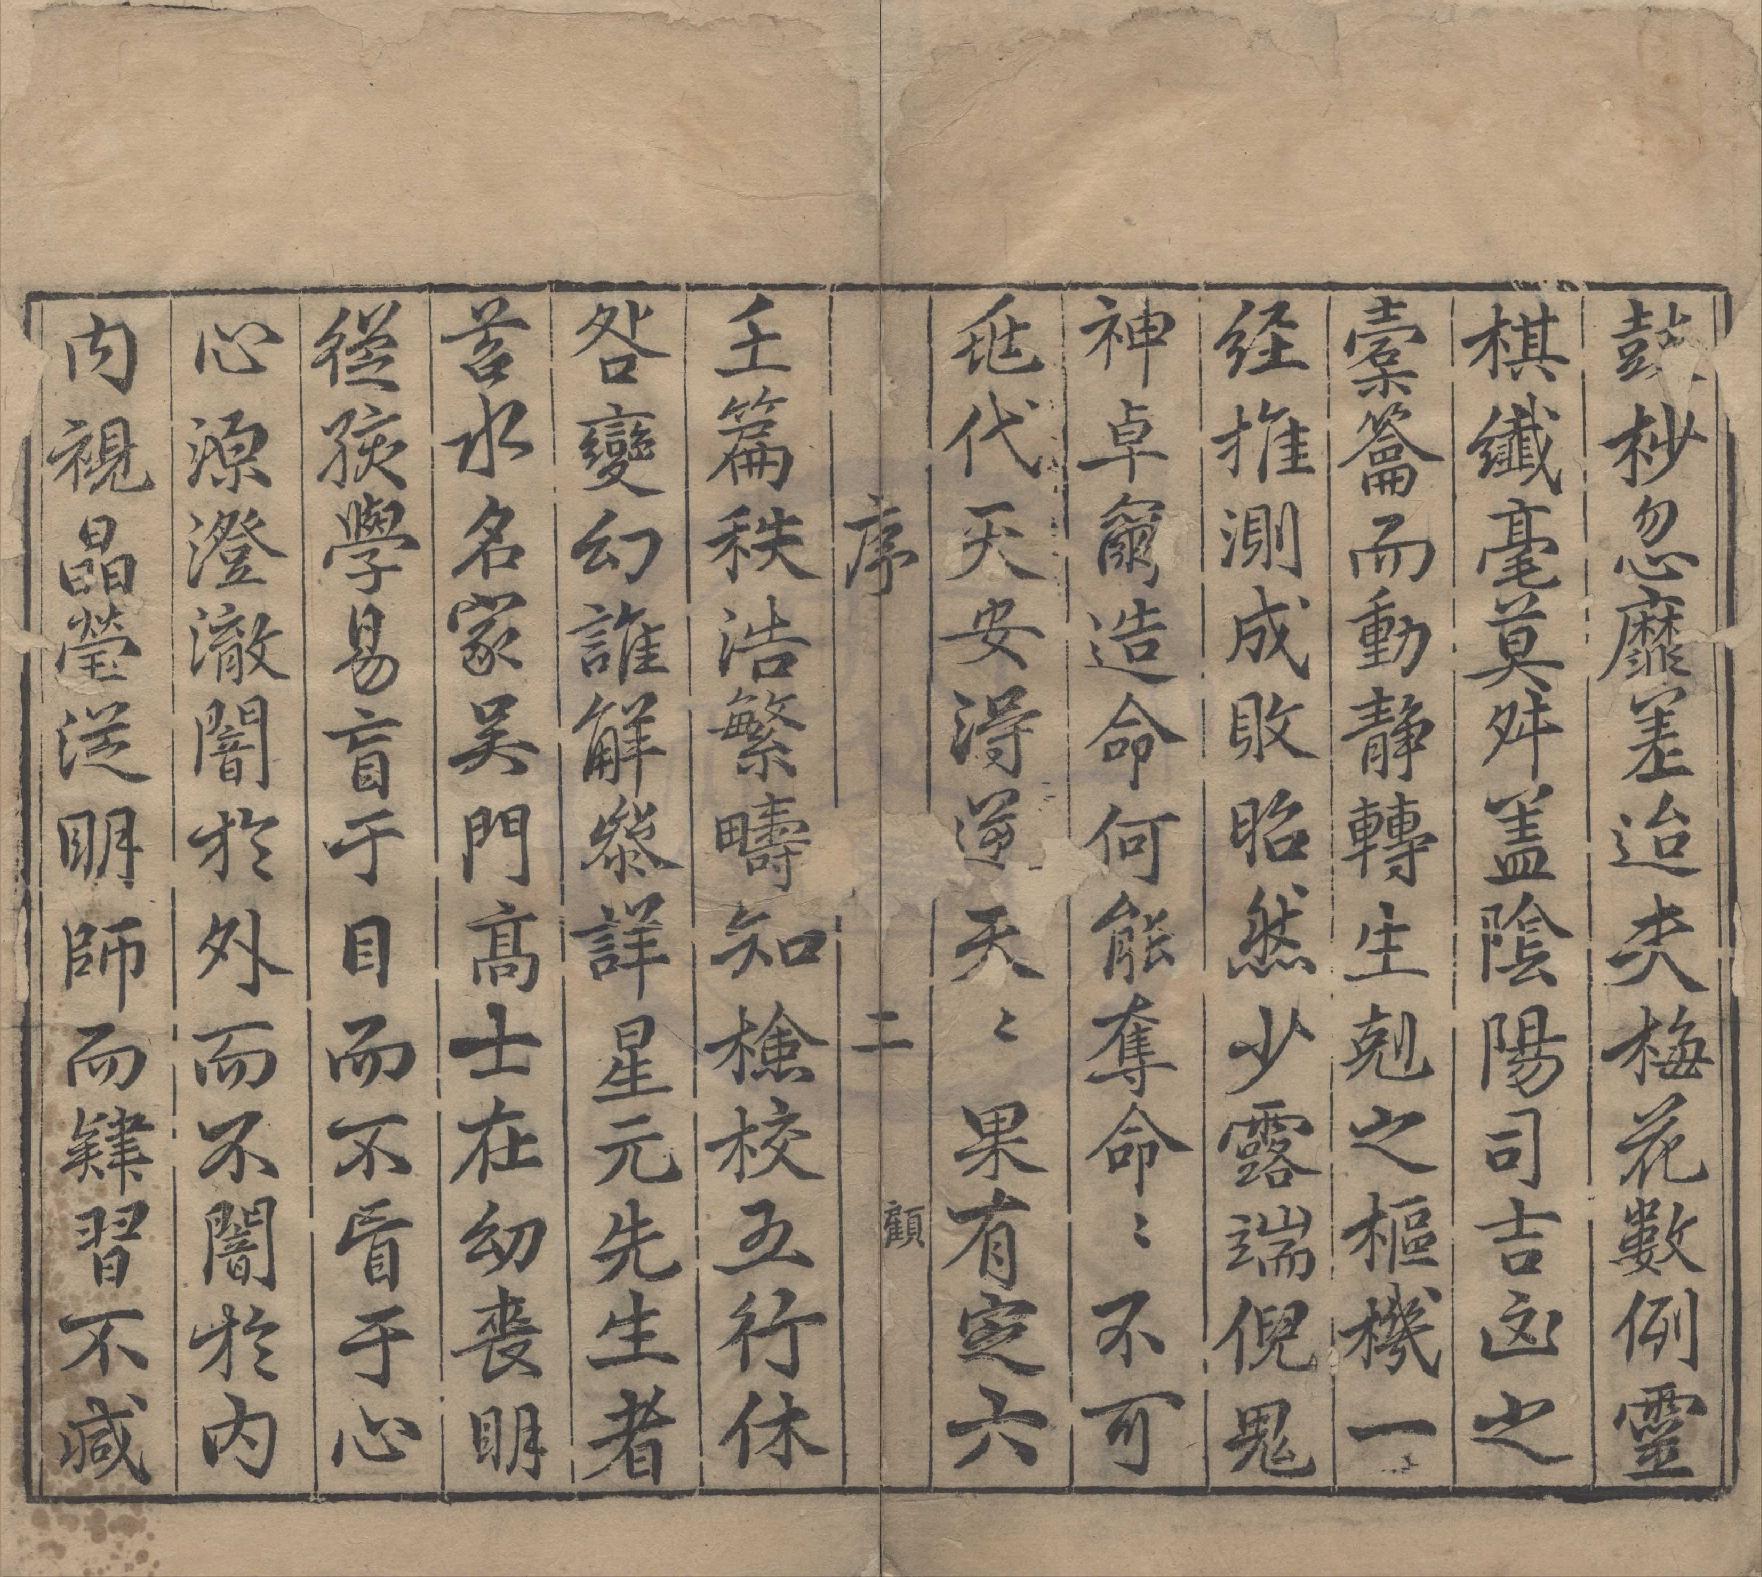 鼓杪忽靡差迨夫梅花數例靈
棋纖毫莫舛盖陰陽司吉凶之
槖籥而動静轉生剋之樞機一
经推測成敗昭然少露端倪鬼
神卓爾造命何能奪命〻不可
代天安得逆天〻果有定六
序 二 顧
壬篇秩浩繁疇知檢校五行休
咎變幻誰解叅詳星元先生者
苕水名家吴門髙士在幼喪明
從孩學易盲于目而不盲于心
心源澄澈闇於外而不闇於内
内視晶瑩從明師而肄習不减